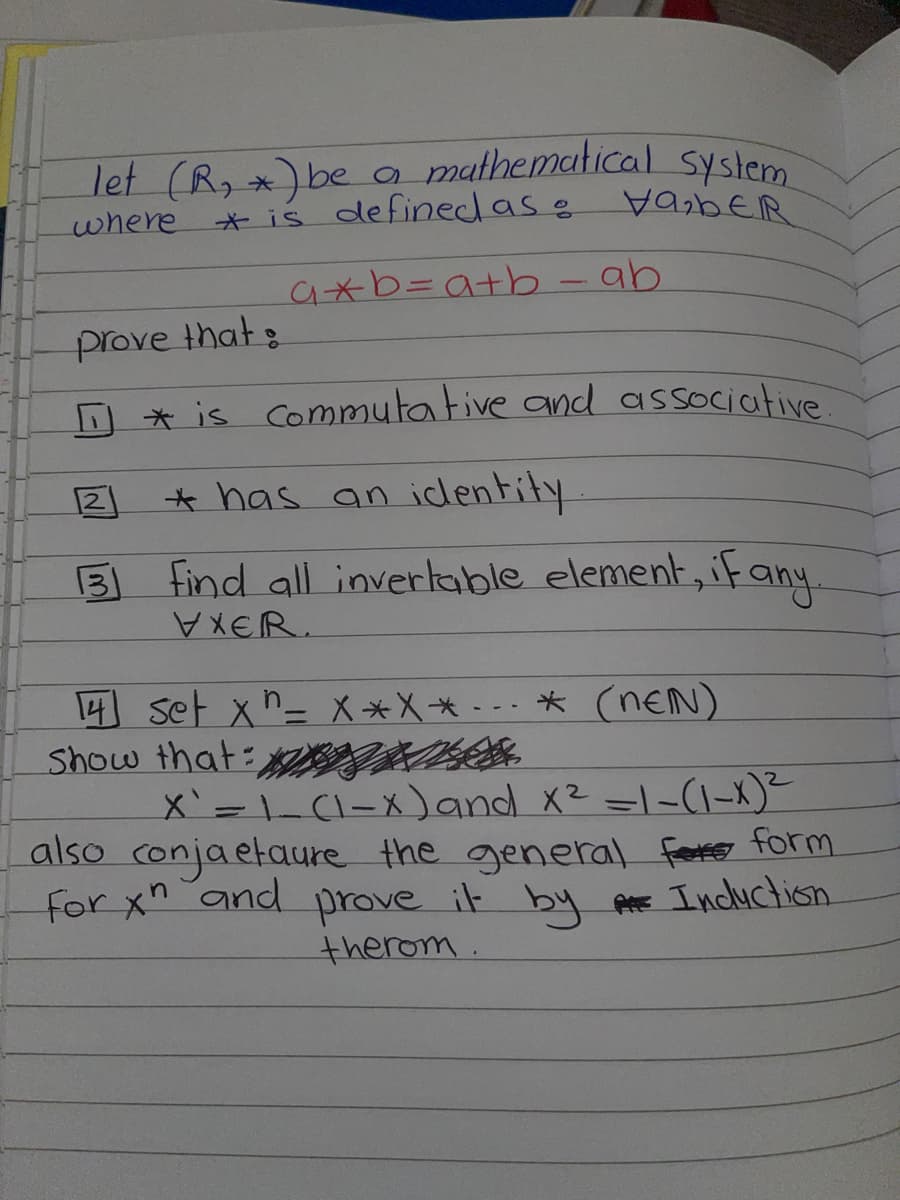 let (R, *) be a mathematical system
where * is defined as : ∀a,b∈R
a*b=a+b-ab
prove that :
[1] * is commutative and associative.
[2] * has an identity.
[3] find all invertable element, if any.
∀x∈R.
[4] set xⁿ = x*x* --- * (n∈N)
show that :
x' = 1-(1-x) and x² = 1-(1-x)²
also conjaetaure the general form
for xⁿ and prove it by Induction
therom.